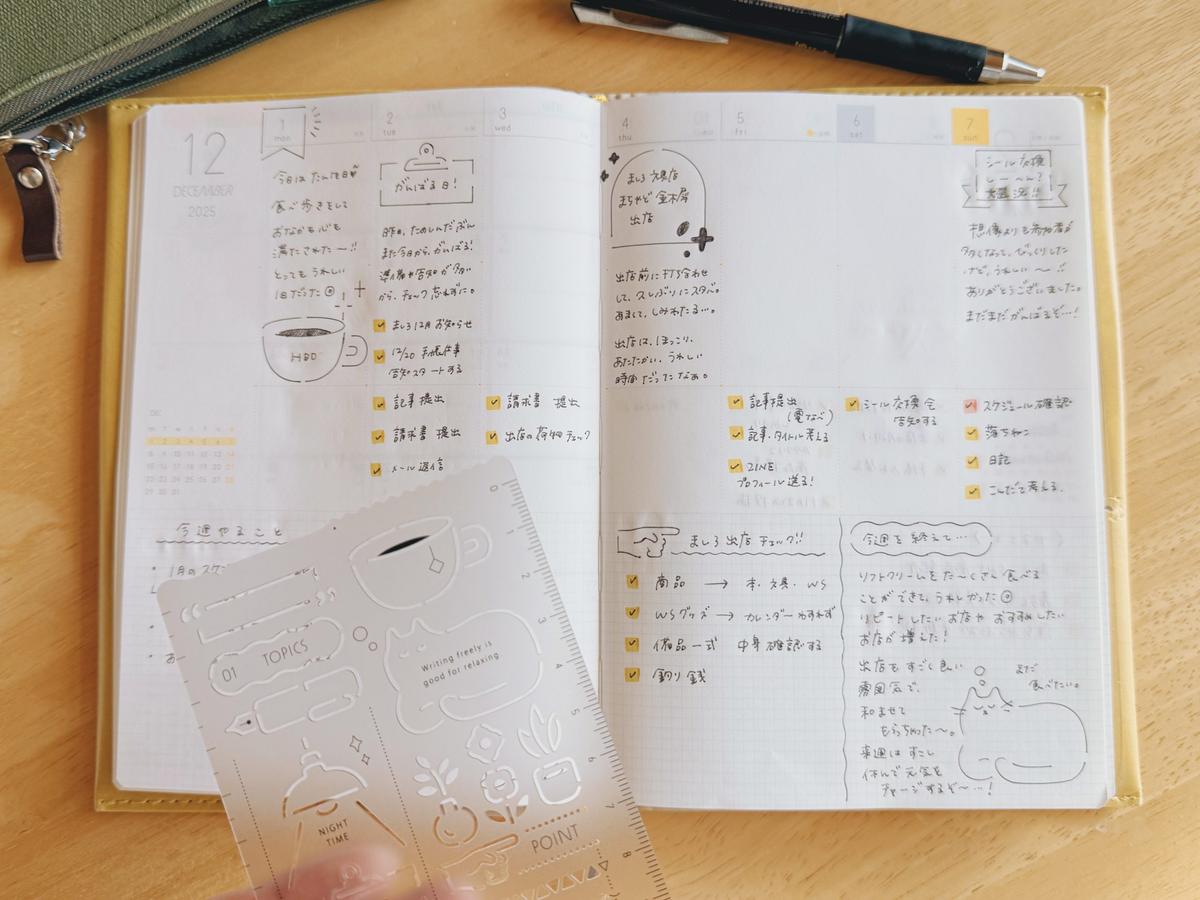 12
DECEMBER
2025
1
mon
今日はたんじ日
食べ歩きをして
おなかも心も
満たされた〜!!
とってもうれしい
1日だった
HBD
2
tue
がんばる日!
昨日、たのしんだぶん
また今日から、がんばる!
準備や告知が多い
から、チェック忘れずに。
ましろ12月お知らせ
12/20 手帳仕事
告知スタートする
記事提出
請求書 提出
メール返信
3
wed
請求書 提出
出店の荷物チェック
4
thu
ましろ文具店
まちやど 金木犀
出店
出店前に打ち合わせ
して、久しぶりにスタバ。
あまくて、しみわたる…。
出店は、ほっこり、
あたたかい、うれしい
時間だったなぁ。
5
fri
記事提出
(電なべ)
記事・タイトル考える
ZINE
プロフィール送る!
6
sat
シール交換会
告知する
7
sun
シール交換
しーへん?
大盛況!!
想像よりも参加者が
多くなって、びっくりした
けど、うれしい〜!!
ありがとうございました。
まだまだがんばるぞ…!
スケジュール確認
落ちねこ
日記
こんだて考える。
DEC
今週やること
1月のスケ
お
ましろ出店チェック!!
商品 → 本・文具・WS
WSグッズ → カレンダーわすれず
備品一式 中身確認する
釣り銭
今週を終えて…
ソフトクリームをた〜くさん食べる
ことができて、うれしかった
リピートしたいお店やおすすめしたい
お店が増えた!
出店もすごく良い
雰囲気で、
和ませて
もらっちゃった〜。
来週はすこし
休んで元気を
チャージするぞ〜…!
まだ
食べたい。
01 TOPICS
Writing freely is
good for relaxing.
NIGHT
TIME
POINT
0
1
2
3
4
5
6
7
8